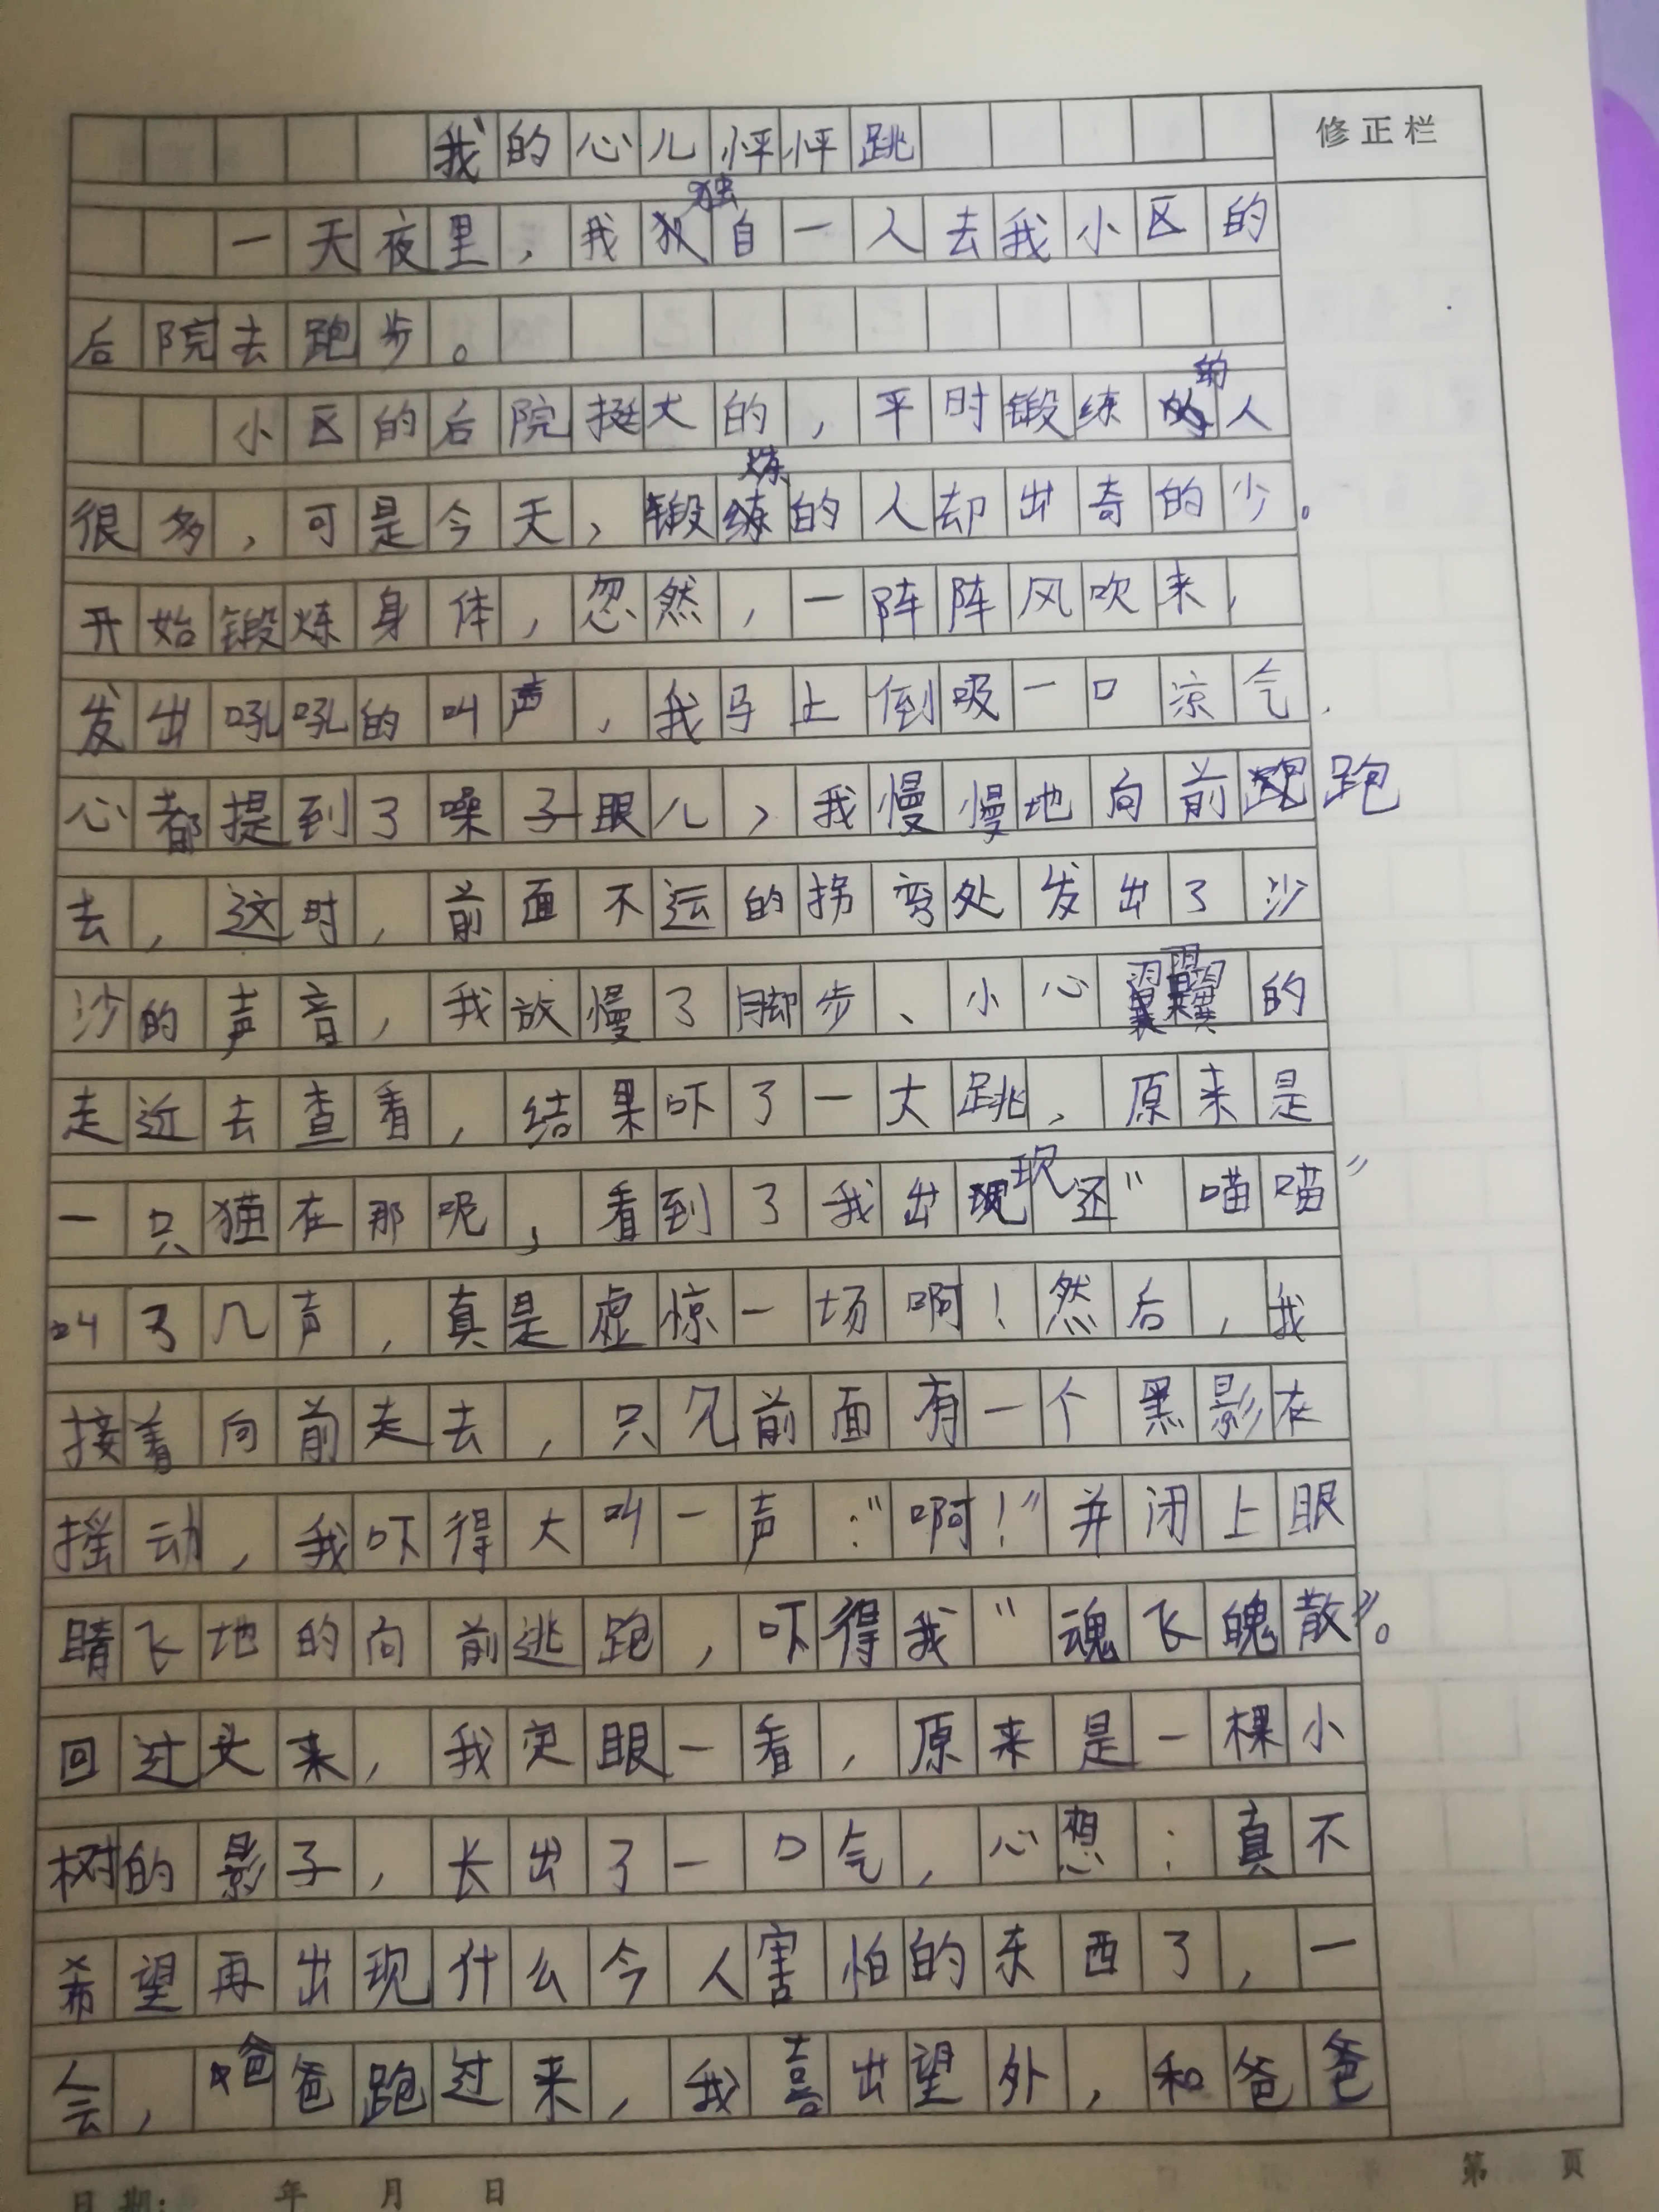 我的心儿怦怦跳
修正栏
一天夜里，我独自一人去我小区的
后院去跑步。
小区的后院挺大的，平时锻练的人
很多，可是今天，锻炼的人却出奇的少。
开始锻炼身体，忽然，一阵阵风吹来，
发出吼吼的叫声，我马上倒吸一口凉气，
心都提到了噪子眼儿，我慢慢地向前跑
去，这时，前面不远的拐弯处发出了沙
沙的声音，我放慢了脚步、小心翼翼的
走近去查看，结果吓了一大跳，原来是
一只猫在那呢，看到了我出现还“喵喵”
叫了几声，真是虚惊一场啊！然后，我
接着向前走去，只见前面有一个黑影在
摇动，我吓得大叫一声：“啊！”并闭上眼
睛飞地的向前逃跑，吓得我“魂飞魄散”。
回过头来，我定眼一看，原来是一棵小
树的影子，长出了一口气，心想：真不
希望再出现什么令人害怕的东西了，一
会，爸爸跑过来，我喜出望外，和爸爸
日期： 年 月 日
第 页